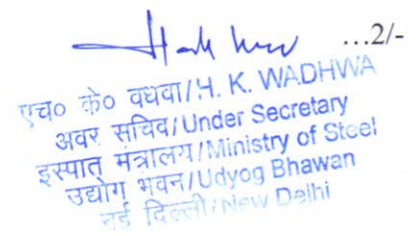 ...2/-
एच० के० वधवा/H. K. WADHWA
अवर सचिव/Under Secretary
इस्पात मंत्रालय/Ministry of Steel
उद्योग भवन/Udyog Bhawan
नई दिल्ली/New Delhi